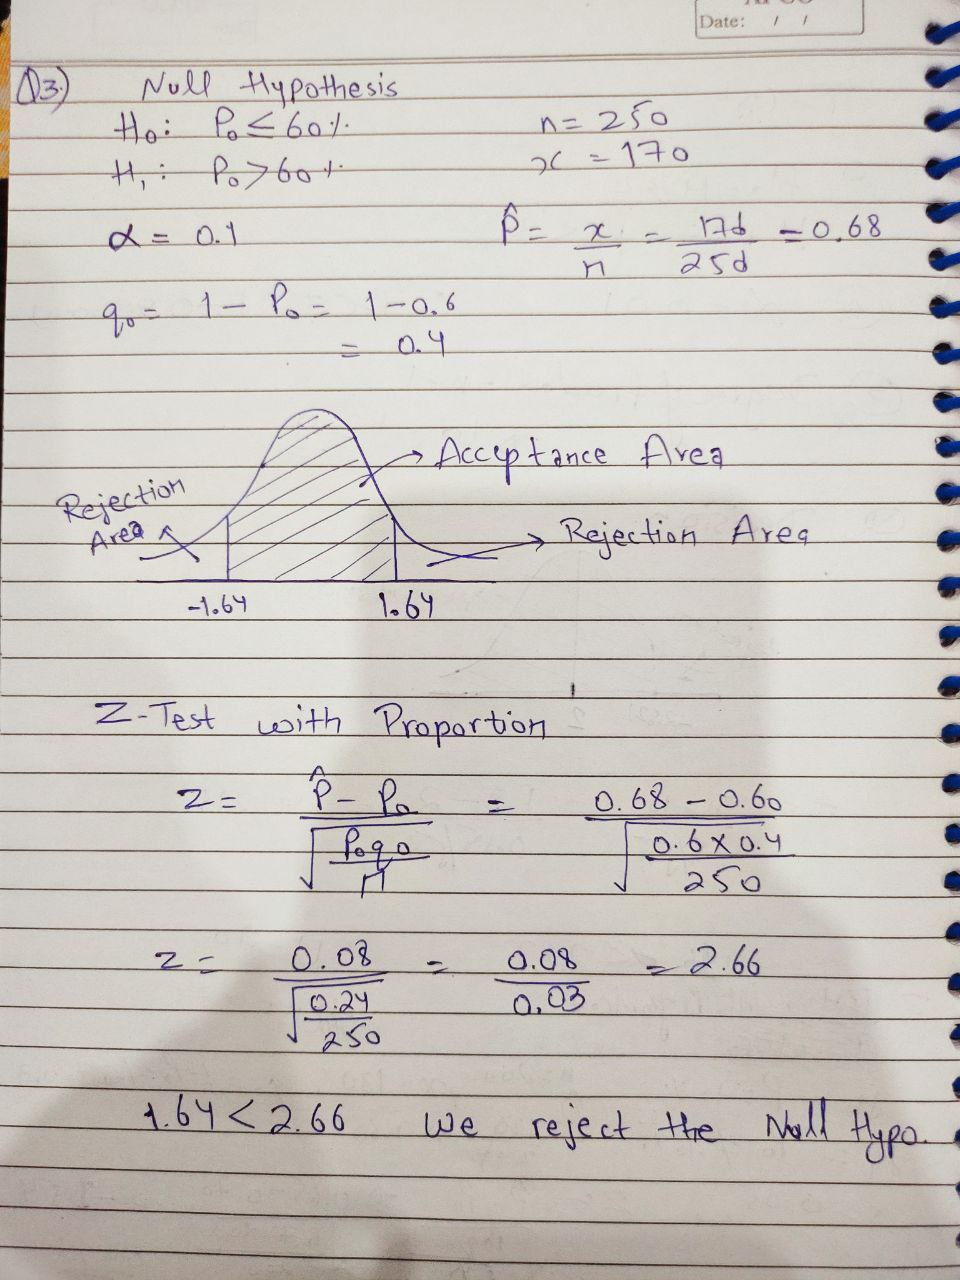 Date: / /
Q3.) Null Hypothesis
H₀: P₀ ≤ 60% n = 250
H₁: P₀ > 60% x = 170
α = 0.1 P̂ = x/n = 170/250 = 0.68
q₀ = 1 - P₀ = 1 - 0.6
= 0.4
Acceptance Area
Rejection
Area
Rejection Area
-1.64 1.64
Z-Test with Proportion
Z = (P̂ - P₀)/√(P₀q₀/n) = (0.68 - 0.60)/√(0.6 x 0.4/250)
Z = 0.08/√(0.24/250) = 0.08/0.03 = 2.66
1.64 < 2.66 We reject the Null Hypo.